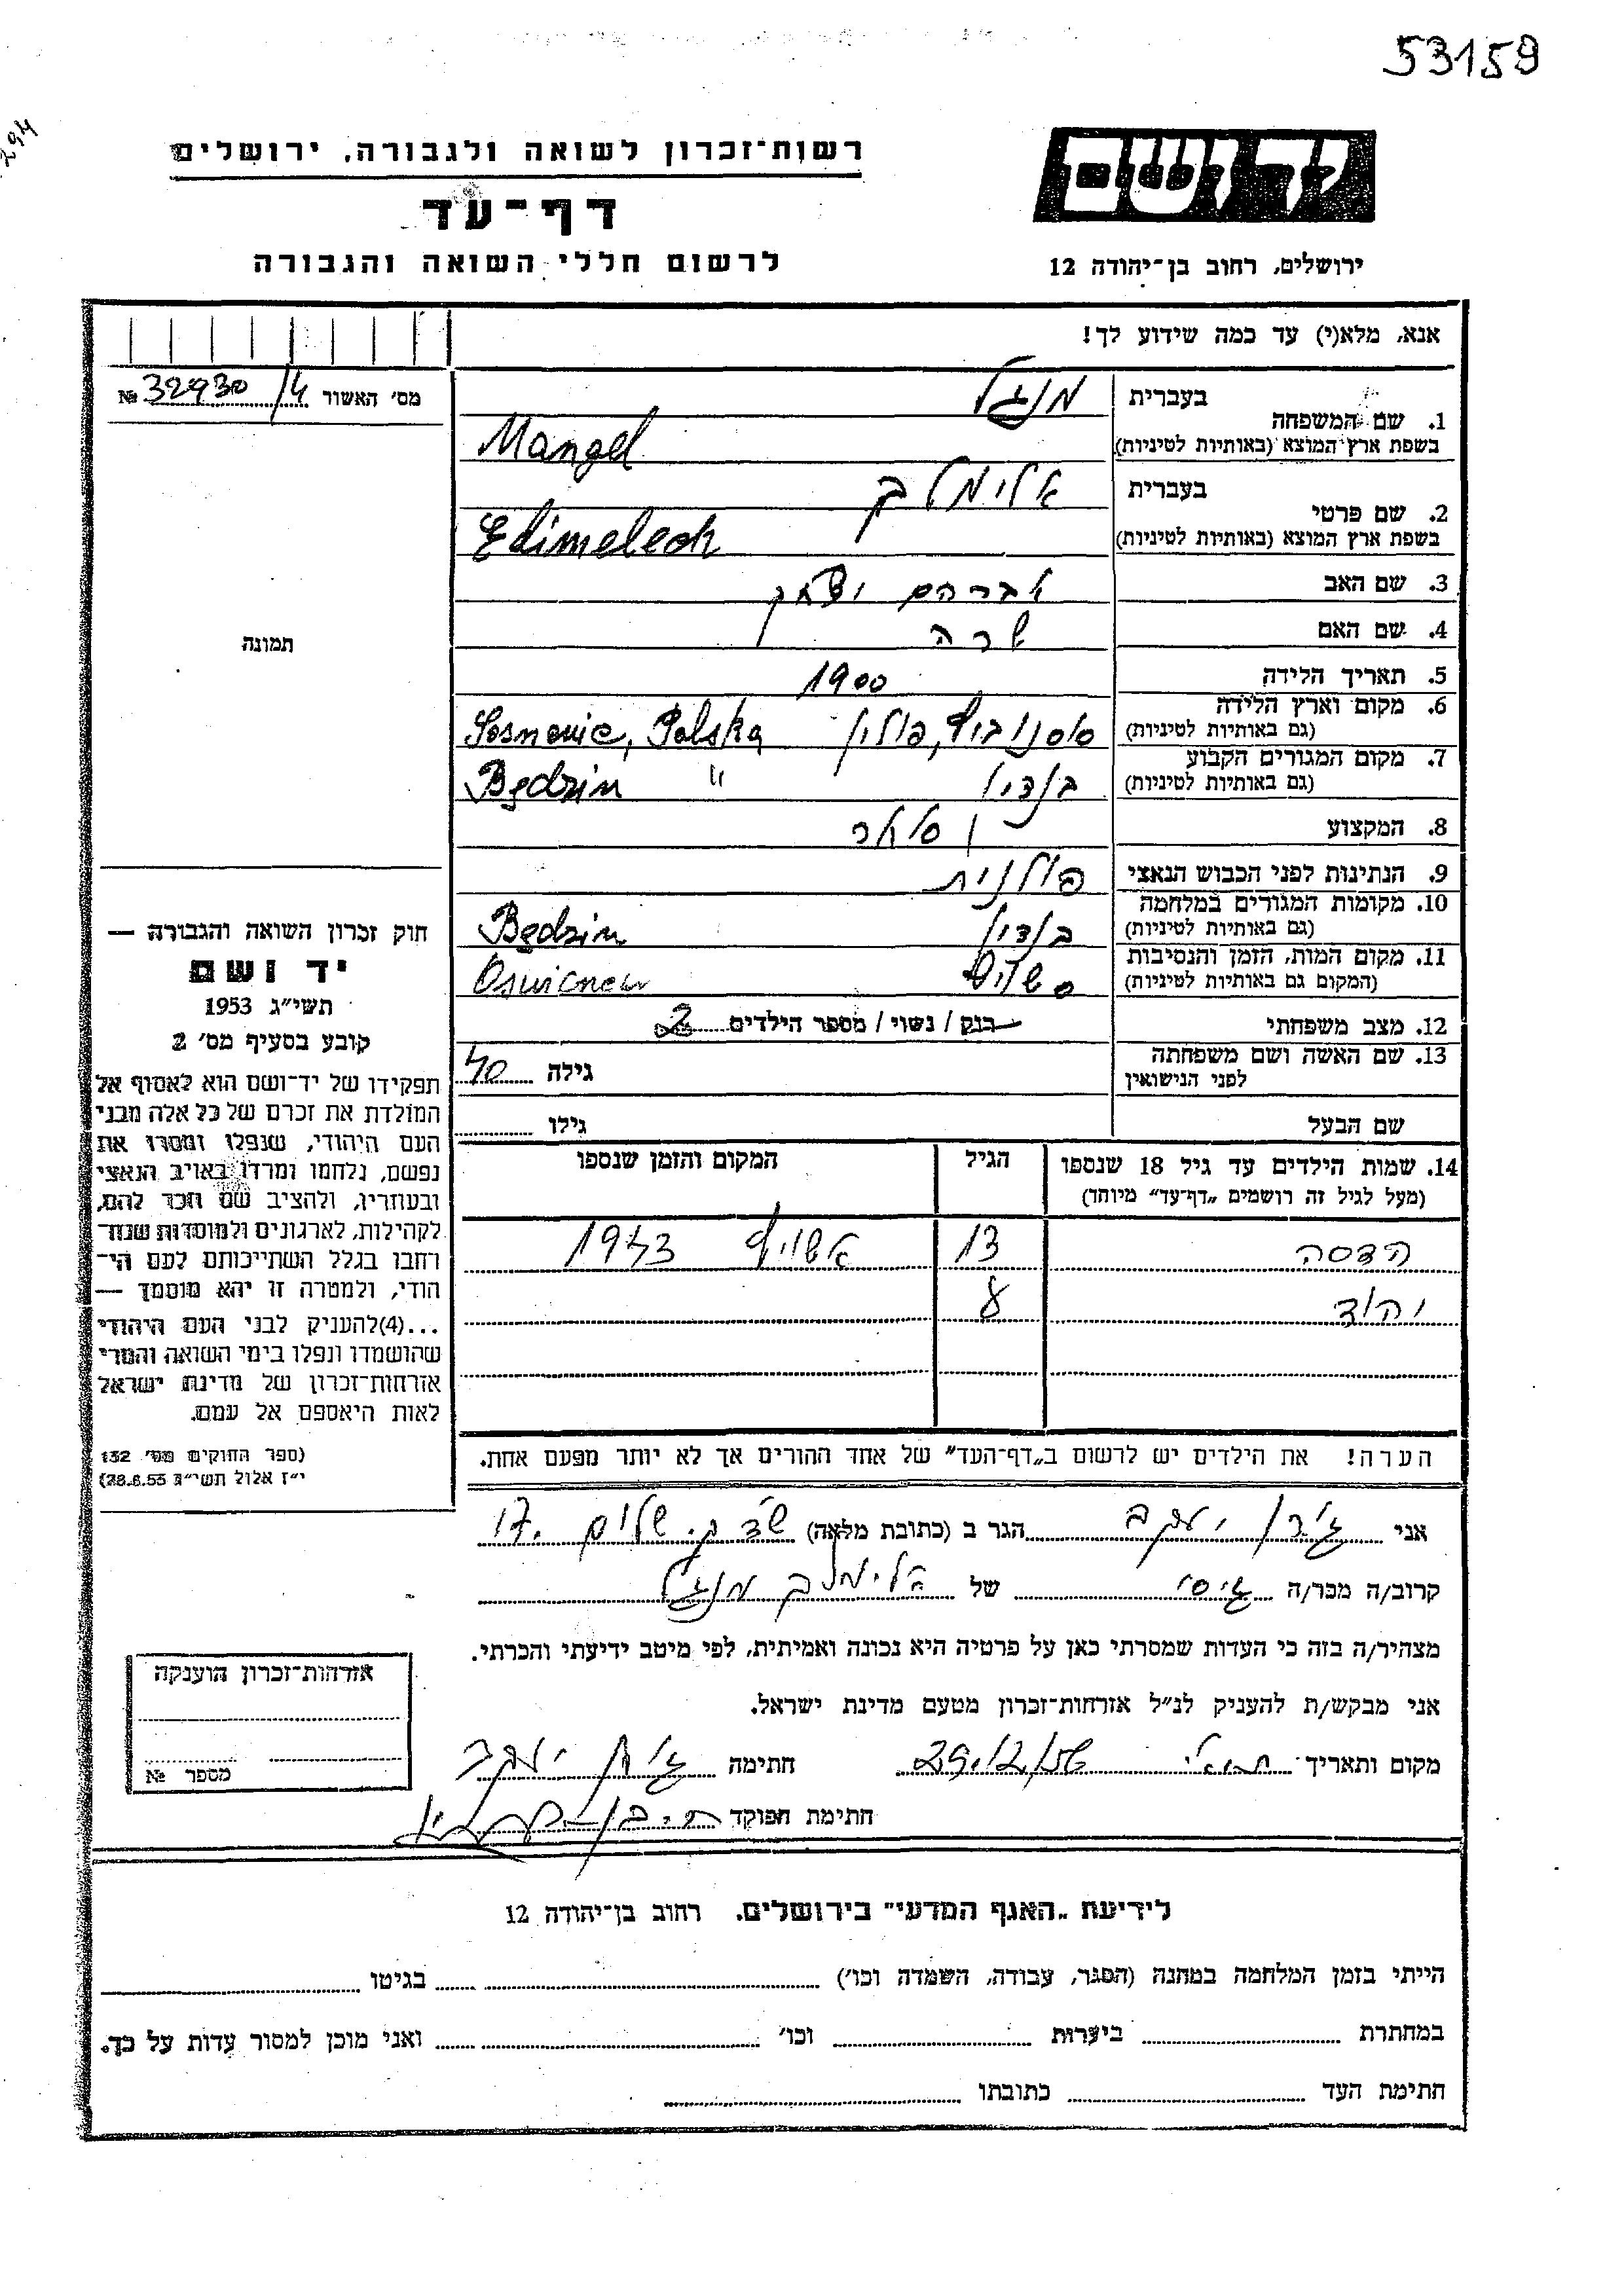 53159
294
רשות־זכרון לשואה ולגבורה, ירושלים
יד ושם
דף־עד
לרשום חללי השואה והגבורה
ירושלים, רחוב בן־יהודה 12
אנא, מלא(י) עד כמה שידוע לך!
מס׳ האשור 32930/4 №
1. שם המשפחה בעברית מנגל
בשפת ארץ המוצא (באותיות לטיניות) Mangel
2. שם פרטי בעברית אלימלך
בשפת ארץ המוצא (באותיות לטיניות) Elimelech
3. שם האב אברהם יצחק
4. שם האם שרה
5. תאריך הלידה 1900
6. מקום וארץ הלידה
(גם באותיות לטיניות) סוסנוביץ, פולין Sosnowic, Polska
7. מקום המגורים הקבוע
(גם באותיות לטיניות) בנדין Będzin "
8. המקצוע
9. הנתינות לפני הכבוש הנאצי פולנית
10. מקומות המגורים במלחמה
(גם באותיות לטיניות) בנדין Będzin
11. מקום המות, הזמן והנסיבות
(המקום גם באותיות לטיניות)
12. מצב משפחתי רווק / נשוי / מספר הילדים 2
13. שם האשה ושם משפחתה
לפני הנישואין גילה 40
שם הבעל גילו
תמונה
חוק זכרון השואה והגבורה —
יד ושם
תשי״ג 1953
קובע בסעיף מס׳ 2
תפקידו של יד־ושם הוא לאסוף אל
המולדת את זכרם של כל אלה מבני
העם היהודי, שנפלו ומסרו את
נפשם, נלחמו ומרדו באויב הנאצי
ובעוזריו, ולהציב שם וזכר להם,
לקהילות, לארגונים ולמוסדות שנח־
רחבו בגלל השתייכותם לעם הי־
הודי, ולמטרה זו יהא מוסמך —
...(4)להעניק לבני העם היהודי
שהושמדו ונפלו בימי השואה והמרי
אזרחות־זכרון של מדינת ישראל
לאות היאספם אל עמם.
(ספר החוקים מס׳ 132
י״ז אלול תשי״ג 28.8.53)
14. שמות הילדים עד גיל 18 שנספו הגיל המקום והזמן שנספו
(מעל לגיל זה רושמים „דף־עד״ מיוחד)
הדסה 13 אשויץ 1943
יהודָ 8
הערה! את הילדים יש לרשום ב„דף־העד״ של אחד ההורים אך לא יותר מפעם אחת.
אני יעקב הגר ב (כתובת מלאה) שלום 17
קרוב/ה מכר/ה גיסי של אלימלך מנגל
מצהיר/ה בזה כי העדות שמסרתי כאן על פרטיה היא נכונה ואמיתית, לפי מיטב ידיעתי והכרתי.
אני מבקש/ת להעניק לנ״ל אזרחות־זכרון מטעם מדינת ישראל.
מקום ותאריך 29/12/56 חתימה יעקב
חתימת הפוקד
אזרחות־זכרון הוענקה
מספר №
לידיעת „האגף המדעי״ בירושלים. רחוב בן־יהודה 12
הייתי בזמן המלחמה במחנה (הסגר, עבודה, השמדה וכו׳) בגיטו
במחתרת ביערות וכו׳ ואני מוכן למסור עדות על כך.
חתימת העד כתובתו